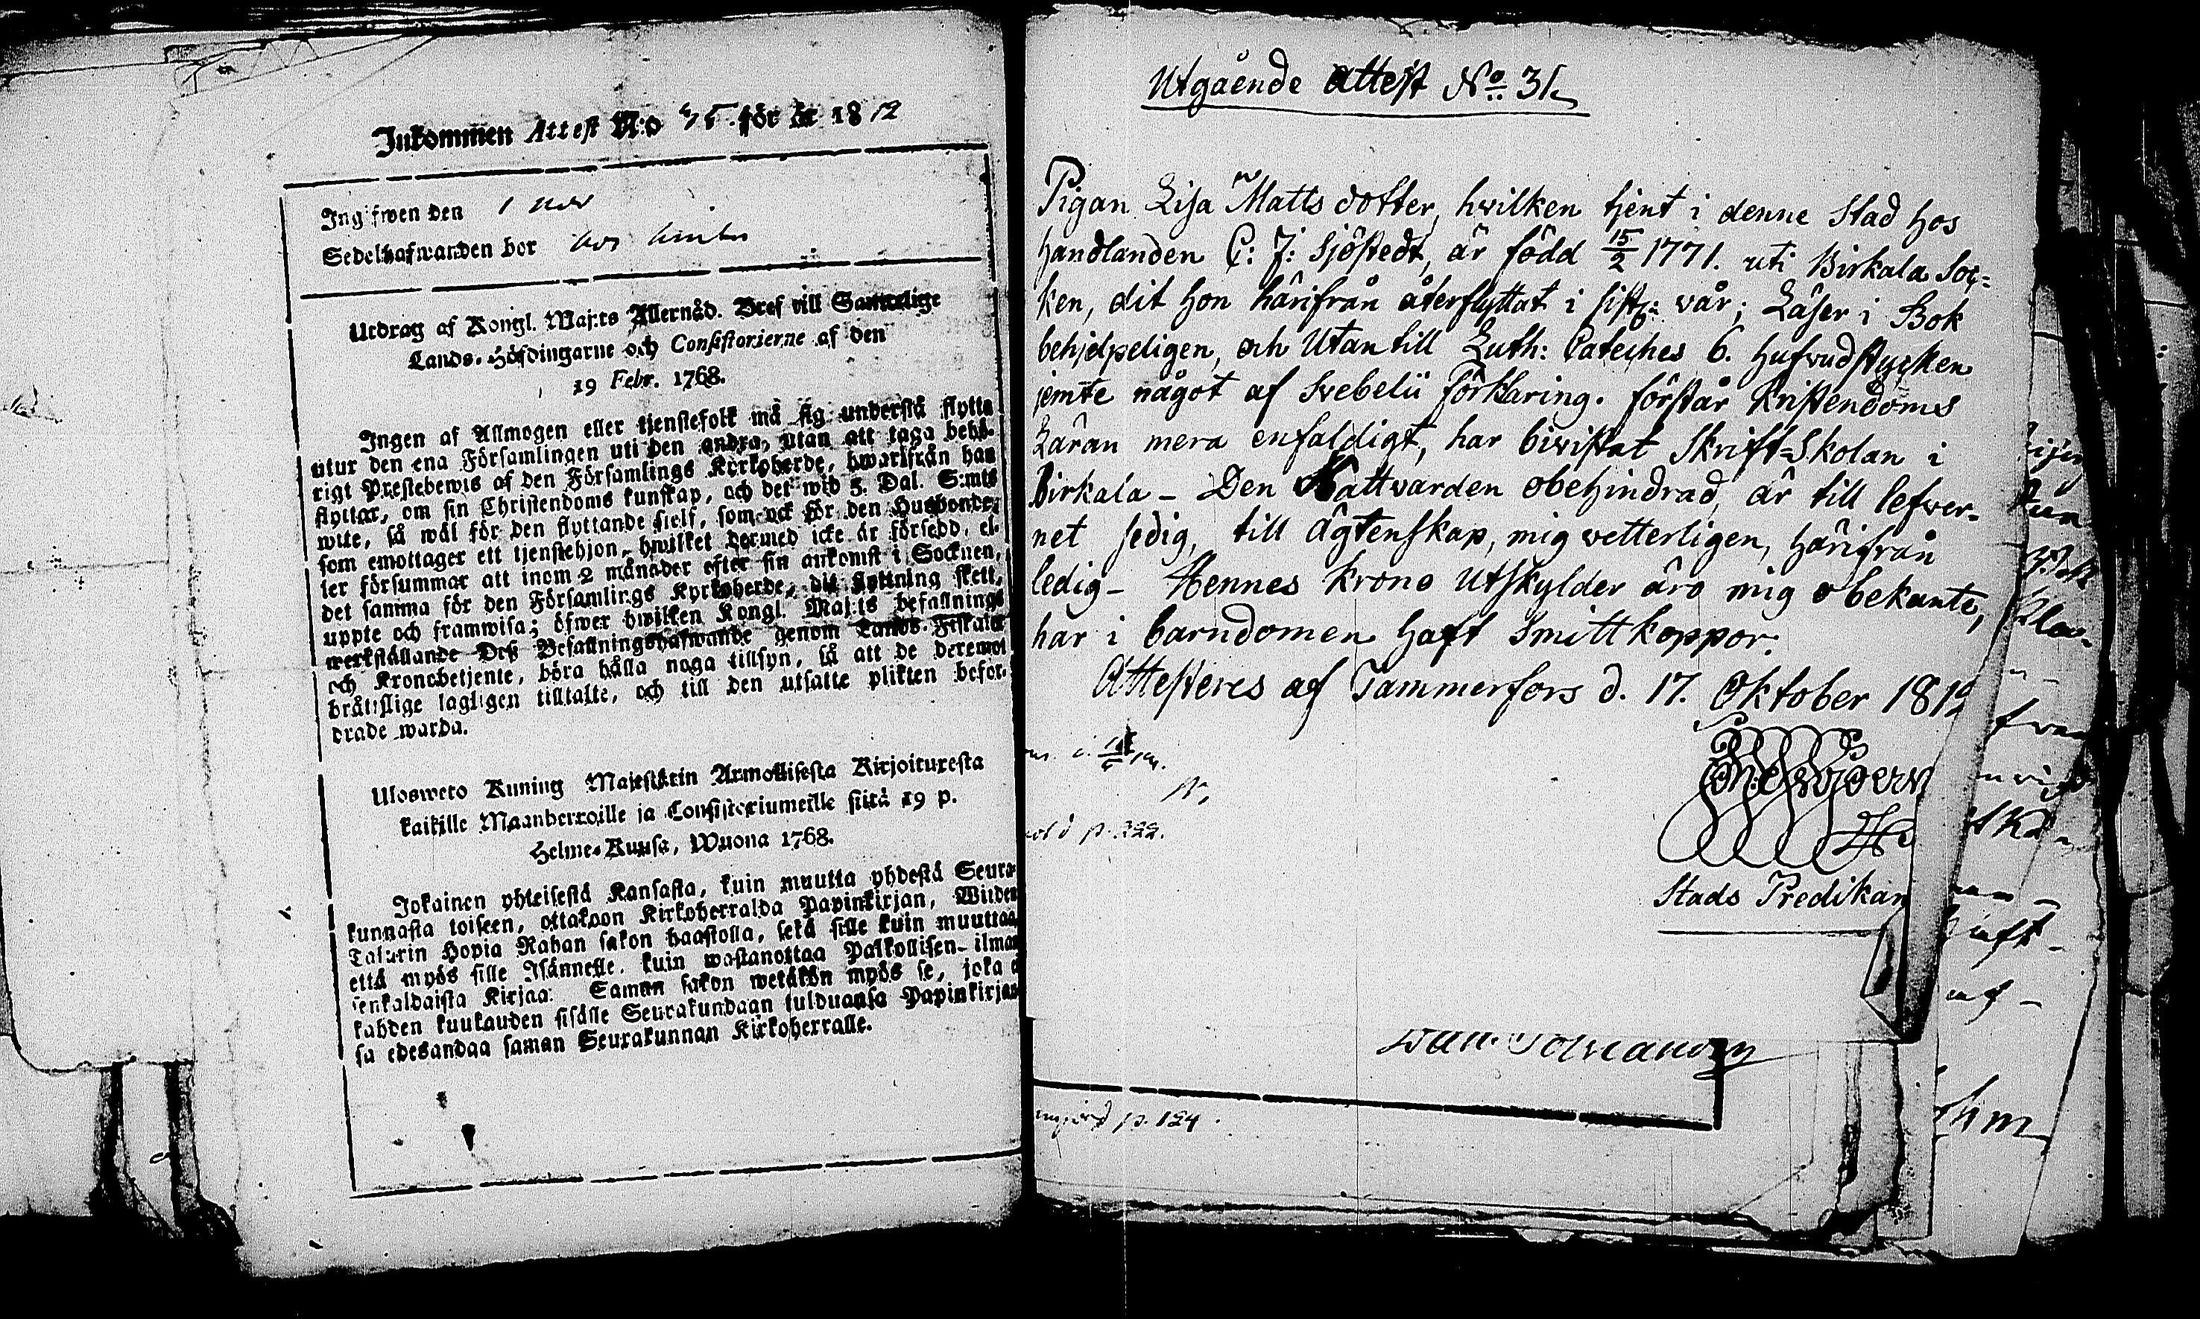 Inkommen Attest N:o 35 för år 1812
Ingifwen den 1 Nov
Sedelhafwanden bor hos
Utdrag af Kongl. Maj:ts Allernåd. Bref till Samtelige
Lands-Höfdingarne och Consistorierne af den
19 Febr. 1768.
Ingen af Allmogen eller tjenstefolk må sig understå flytta
utur den ena Församlingen uti den andra, utan att taga behö-
rigt Prestebewis af den Församlings Kyrkoherde, hwarifrån han
flyttar, om sin Christendoms kunskap, och det wid 5. Dal. S:mts
wite, så wäl för den flyttande sielf, som ock för den Husbonde,
som emottager ett tjenstehjon, hwilket dermed icke är försedd, el-
ler försummar att inom 2 månader efter sin ankomst i Socknen,
det samma för den Församlings Kyrkoherde, dit flyttning skett,
uppte och framwisa; öfwer hwilken Kongl. Maj:ts befallnings
werkställande Dess Befallningshafwande genom Lands-Fiskaler
och Kronobetjente, böra hålla noga tillsyn, så att de deremot
bråtslige lagligen tilltalte, och till den utsatte plikten befor-
drade warda.
Ulosweto Kuning Majestätin Armollisesta Kirjoituxesta
kaikille Maanherroille ja Consistoriumeille siitä 19 p.
Helme-Kuusa, Wuona 1768.
Jokainen yhteisestä Kansasta, kuin muutta yhdestä Seura-
kunnasta toiseen, ottakoon Kirkoherralda Papinkirjan, Wiiden
Talarin Hopia Rahan sakon haastolla, sekä sille kuin muuttaa,
että myös sille Isännelle, kuin wastanottaa Palkollisen ilman
senkaldaista Kirjaa. Saman sakon wetäkön myös se, joka ei
kahden kuukauden sisälle Seurakundaan tulduansa Papinkirjan-
sa edesandaa saman Seurakunnan Kirkoherralle.
Utgående Attest No. 31.
Pigan Lisa Matts dotter, hvilken tjent i denne Stad hos
handlanden C: J: Sjöstedt, är född 15/2 1771. uti Birkala Sock-
ken, dit hon härifrån återflyttat i sistl: vår; Läser i Bok
behjelpeligen, och Utantill Luth: Cateches 6. hufvudstycken
jemte något af Svebelii förklaring. förstår Kristendoms
Läran mera enfaldigt, har bivistat Skrift-Skolan i
Birkala - Den H Nattvarden obehindrad, är till lefver-
net sedig, till Ägtenskap, mig vetterligen, härifrån
ledig - Hennes Krono Utskylder äro mig obekante,
har i barndomen haft Smittkoppor.
Attesteres af Tammerfors d. 17. Oktober 1812
Stads Predikan
p. 222.
p. 124.